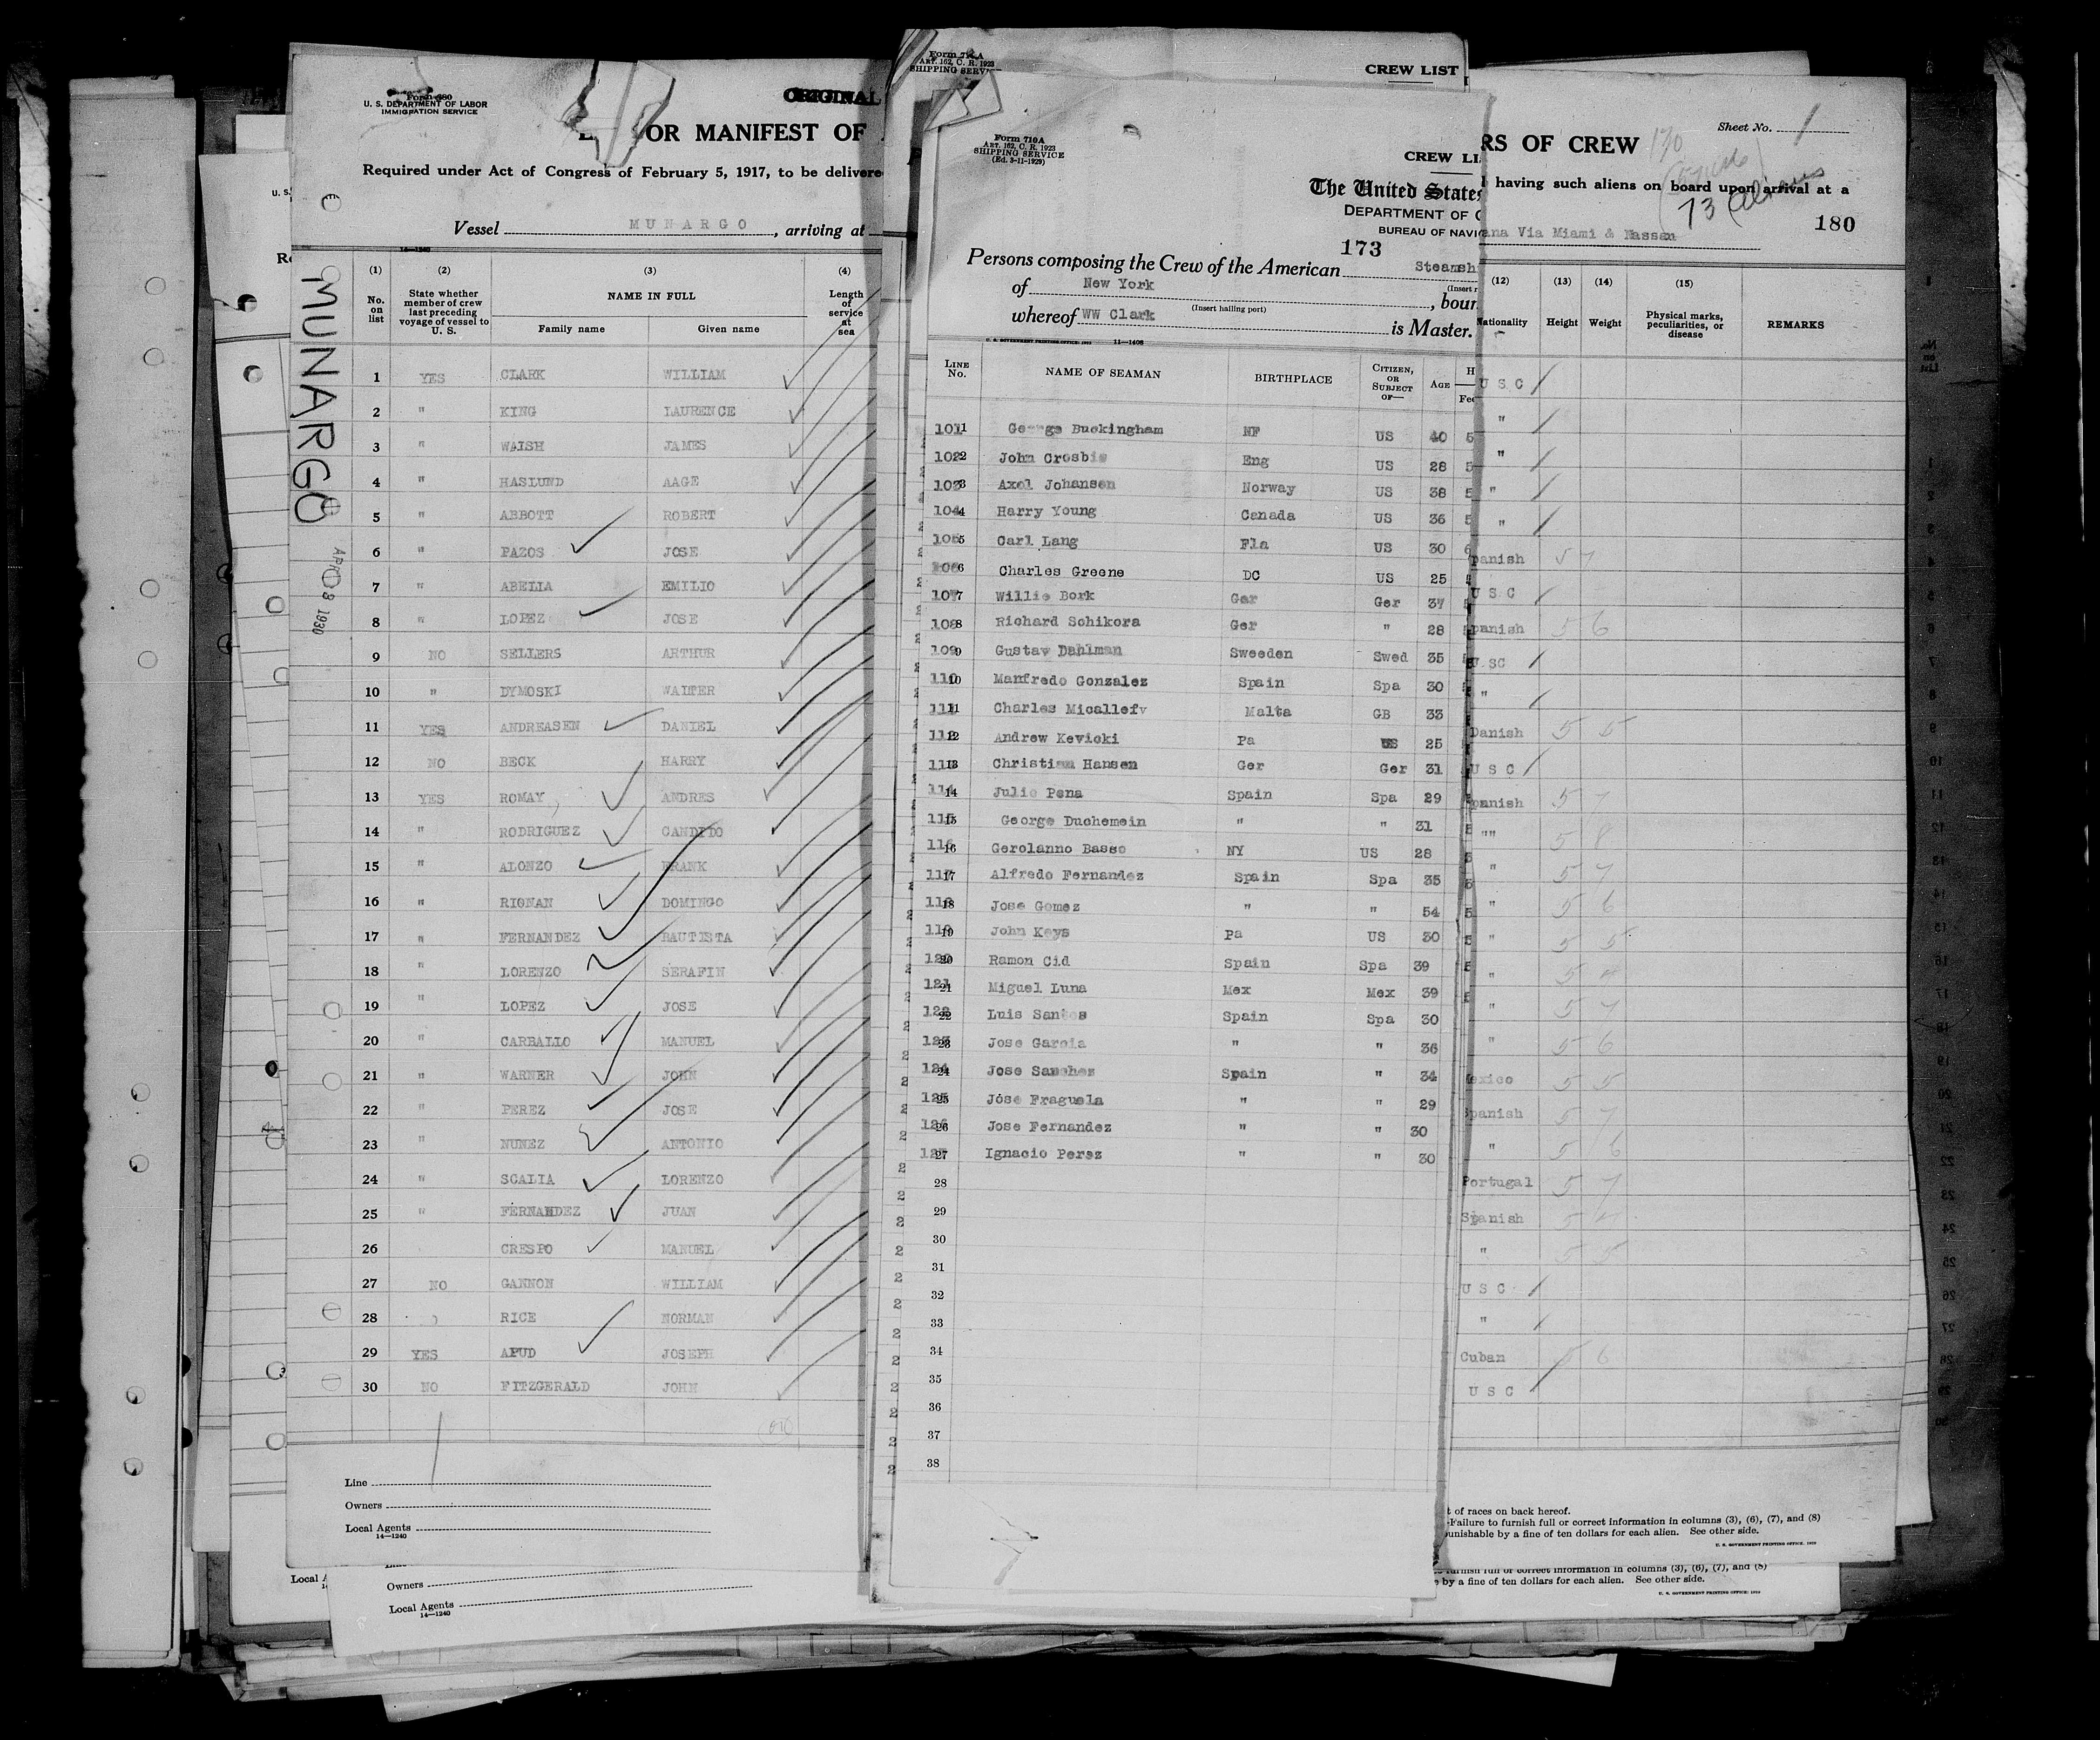 Form 680
U. S. DEPARTMENT OF LABOR
IMMIGRATION SERVICE
ORIGINAL
OR MANIFEST OF
Required under Act of Congress of February 5, 1917, to be delivere
Vessel MUNARGO, arriving at
14—1240
(1) (2) (3) (4)
No. on list
State whether member of crew last preceding voyage of vessel to U. S.
NAME IN FULL
Family name Given name
Length of service at sea
MUNARGO
APR 08 1930
1 YES CLARK WILLIAM
2 " KING LAURENCE
3 " WALSH JAMES
4 " HASLUND AAGE
5 " ABBOTT ROBERT
6 " PAZOS JOSE
7 " ABELIA EMILIO
8 " LOPEZ JOSE
9 NO SELLERS ARTHUR
10 " DYMOSKI WALTER
11 YES ANDREASEN DANIEL
12 NO BECK HARRY
13 YES ROMAY ANDRES
14 " RODRIGUEZ CANDIDO
15 " ALONZO FRANK
16 " RIONAN DOMINGO
17 " FERNANDEZ BAUTISTA
18 " LORENZO SERAFIN
19 " LOPEZ JOSE
20 " CARBALLO MANUEL
21 " WARNER JOHN
22 " PEREZ JOSE
23 " NUNEZ ANTONIO
24 " SCALIA LORENZO
25 " FERNANDEZ JUAN
26 CRESPO MANUEL
27 NO GANNON WILLIAM
28 RICE NORMAN
29 YES APUD JOSEPH
30 NO FITZGERALD JOHN
Line
Owners
Local Agents
14—1240
Owners
Local Agents
14—1240
Form 710A
ART. 162, C. R. 1923
SHIPPING SERV
CREW LIST
Form 710A
ART. 162, C. R. 1923
SHIPPING SERVICE
(Ed. 3-11-1929)
CREW LI
The United States
DEPARTMENT OF C
BUREAU OF NAVI
173
Persons composing the Crew of the American Steamsh
of New York, boun
(Insert hailing port)
whereof WW Clark is Master.
U. S. GOVERNMENT PRINTING OFFICE: 1929 11—1408
LINE No. NAME OF SEAMAN BIRTHPLACE CITIZEN, OR SUBJECT OF— AGE H
Fee
101 1 George Buckingham NF US 40 5
102 2 John Crosbie Eng US 28 5
103 3 Axel Johansen Norway US 38 5
104 4 Harry Young Canada US 36 5
105 5 Carl Lang Fla US 30 6
106 6 Charles Greene DC US 25
107 7 Willie Bork Ger Ger 37
108 8 Richard Schikora Ger " 28
109 9 Gustav Dahlman Sweeden Swed 35
110 10 Manfredo Gonzalez Spain Spa 30
111 11 Charles Micallefv Malta GB 33
112 12 Andrew Kevicki Pa US 25
113 13 Christian Hansen Ger Ger 31
114 14 Julio Pena Spain Spa 29
115 15 George Duchemein " " 31
116 16 Gerolanno Basso NY US 28
117 17 Alfredo Fernandez Spain Spa 35
118 18 Jose Gomez " " 54
119 19 John Keys Pa US 30
120 20 Ramon Cid Spain Spa 39
121 21 Miguel Luna Mex Mex 39
122 22 Luis Santos Spain Spa 30
123 23 Jose Garcia " " 36
124 24 Jose Sanchez Spain " 34
125 25 Jose Fraguela " " 29
126 26 Jose Fernandez " " 30
127 27 Ignacio Perez " " 30
28
29
30
31
32
33
34
35
36
37
38
Sheet No. 1
RS OF CREW
having such aliens on board upon arrival at a
73 Aliens
180
ana Via Miami & Nassau
(12) (13) (14) (15)
Nationality Height Weight Physical marks, peculiarities, or disease REMARKS
U S C
"
"
"
"
panish 5 7
U S C
panish 5 6
U SC
"
Danish 5 5
U S C
panish 5 7
"" 5 8
" 5 7
" 5 6
" 5 5
" 5
" 5 7
" 5 6
exico 5 5
panish 5 7
" 5 6
Portugal 5 7
Spanish 5
" 5 5
U S C
"
Cuban 5 6
U S C
t of races on back hereof.
-Failure to furnish full or correct information in columns (3), (6), (7), and (8)
unishable by a fine of ten dollars for each alien. See other side.
U. S. GOVERNMENT PRINTING OFFICE: 1929
furnish full or correct information in columns (3), (6), (7), and (8)
by a fine of ten dollars for each alien. See other side.